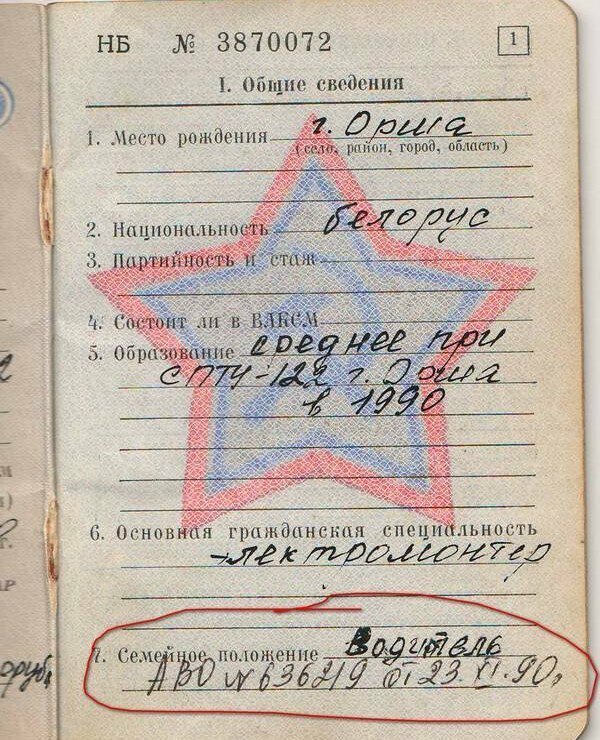 НБ № 3870072 1
I. Общие сведения
1. Место рождения г. Орша
(село, район, город, область)
2. Национальность белорус
3. Партийность и стаж
4. Состоит ли в ВЛКСМ
5. Образование среднее при
СПТУ-122 г. Орша
в 1990
6. Основная гражданская специальность
электромонтер
7. Семейное положение Водитель
АВО № 636219 от 23.XI.90г